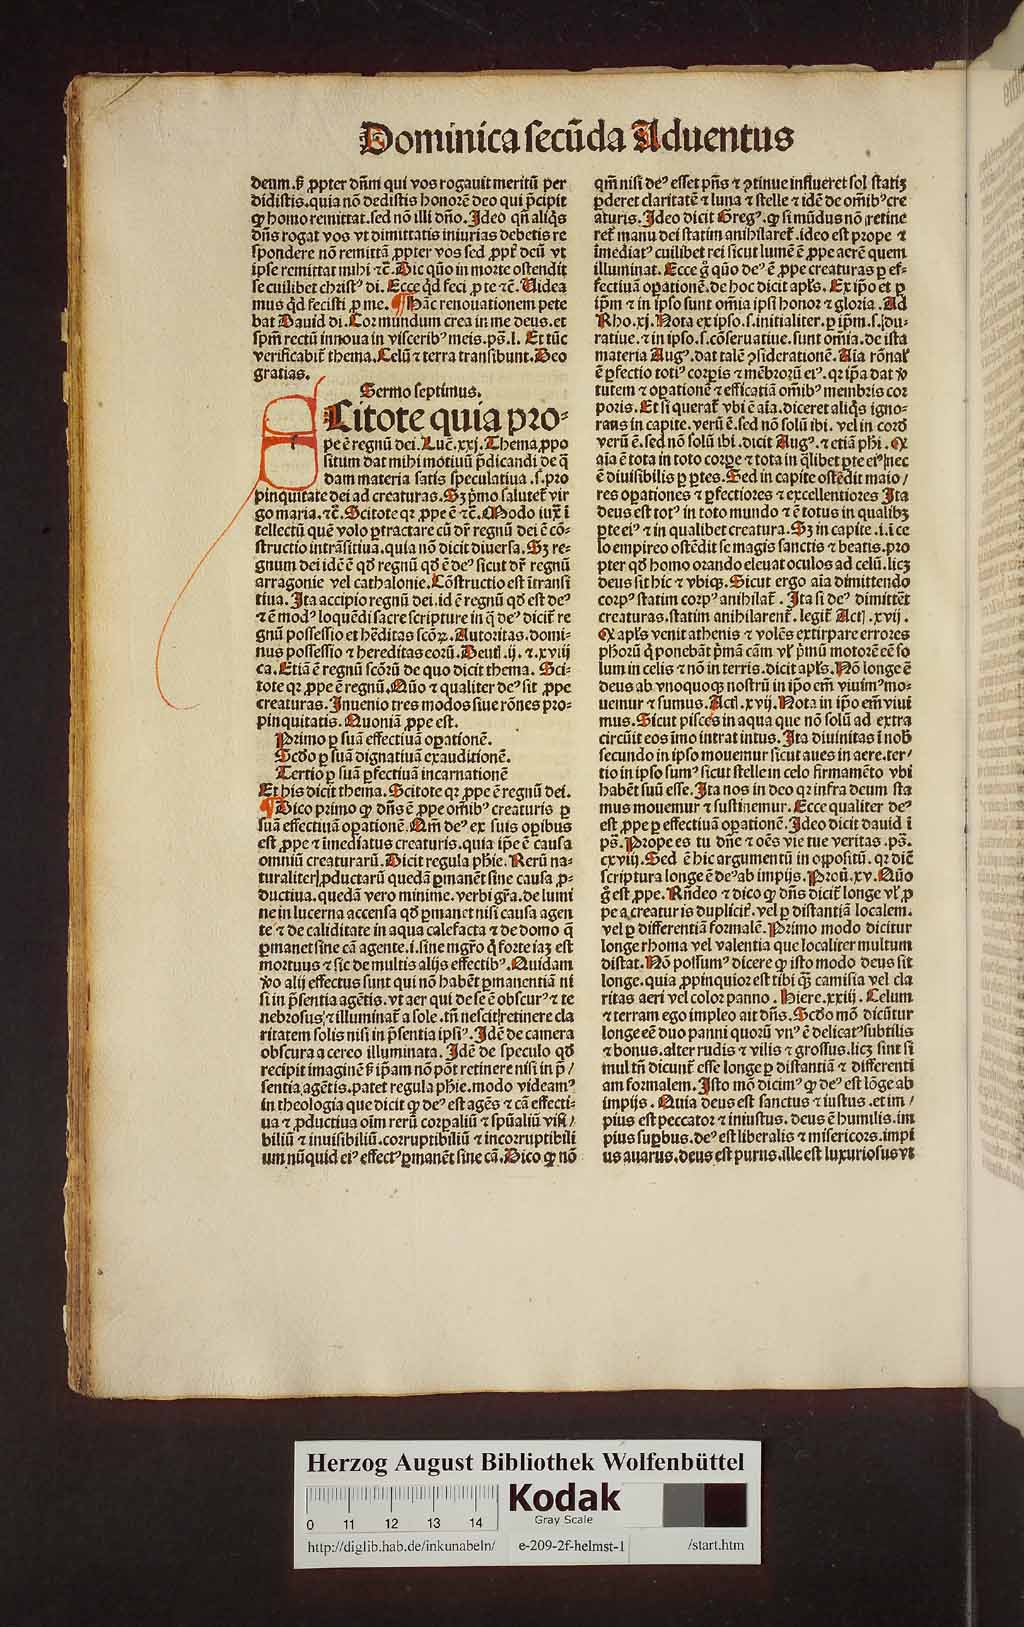 Dominica secūda Aduentus
deum. sꝫ ꝓpter dn̄m qui vos rogauit meritū per
didistis. quia nō dedistis honorē deo qui p̄cipit
ꝙ homo remittat. sed nō illi dn̄o. Ideo qn̄ aliq̄s
dn̄s rogat vos vt dimittatis iniurias debetis re
spondere nō remittā ꝓpter vos sed ꝓpt̄ deū vt
ipse remittat mihi ⁊c̄. Dic quō in morte ostendit
se cuilibet christꝰ di. Ecce qd̄ feci ꝓ te ⁊c̄. Uidea
mus qd̄ fecisti ꝓ me. ¶ Hāc renouationem pete
bat Dauid di. Cor mundum crea in me deus. et
spm̄ rectū innoua in visceribꝰ meis. ps̄. l. Et tūc
verificabit̄ thema. Celū ⁊ terra transibunt. Deo
gratias.
Sermo septimus.
SCitote quia pro-
pe ē regnū dei. Luc̄. xxj. Thema ꝓpo
situm dat mihi motiuū p̄dicandi de q̄
dam materia satis speculatiua .s. pro
pinquitate dei ad creaturas. Sꝫ p̄mo salutet̄ vir
go maria. ⁊c̄. Scitote qr ꝓpe ē ⁊c̄. Modo iux̄ ī
tellectū quē volo ꝑtractare cū dr̄ regnū dei ē cō-
structio intrāsitiua. quia nō dicit diuersa. Sꝫ re-
gnum dei idē ē qd̄ regnū qd̄ ē deꝰ sicut dr̄ regnū
arragonie vel cathalonie. Cōstructio est ītransi
tiua. Ita accipio regnū dei. id ē regnū qd̄ est deꝰ
⁊ ē modꝰ loquēdi sacre scripture in q̄ deꝰ dicit̄ re
gnū possessio et hēditas scōꝝ. Autoritas. domi-
nus possessio ⁊ hereditas eorū. Deut̄. ij. ⁊. xviij
ca. Etiā ē regnū scōrū de quo dicit thema. Sci-
tote qr ꝓpe ē regnū. Nūo ⁊ qualiter deꝰ sit ꝓpe
creaturas. Inuenio tres modos siue rōnes pro-
pinquitatis. Quoniā ꝓpe est.
Primo ꝑ suā effectiuā oꝑationē.
Scd̄o ꝑ suā dignatiuā exauditionē.
Tertio ꝑ suā ꝑfectiuā incarnationē
Et his dicit thema. Scitote qr ꝓpe ē regnū dei.
¶ Dico primo ꝙ dn̄s ē ꝓpe om̄ibꝰ creaturis ꝑ
suā effectiuā oꝑationē. Qm̄ deꝰ ex suis oꝑibus
est ꝓpe ⁊ īmediatus creaturis. quia ip̄e ē causa
omniū creaturarū. Dicit regula ph̄ie. Rerū na-
turaliter ꝓductarū quedā ꝑmanēt sine causa ꝓ-
ductiua. quedā vero minime. verbi gr̄a. de lumi
ne in lucerna accensa qd̄ ꝑmanet nisi causa agen
te ⁊ de caliditate in aqua calefacta ⁊ de domo q̄
ꝑmanet sine cā agente. i. sine mgr̄o q̄ forte iaꝫ est
mortuus ⁊ sic de multis alijs effectibꝰ. Quidam
v̄o alij effectus sunt qui nō habēt ꝑmanentiā ni
si in p̄sentia agētis. vt aer qui de se ē obscurꝰ ⁊ te
nebrosus ⁊ illuminat̄ a sole. tn̄ nescit retinere cla
ritatem solis nisi in p̄sentia ipsiꝰ. Idē de camera
obscura a cereo illuminata. Idē de speculo qd̄
recipit imaginē ⁊ ip̄am nō pōt retinere nisi in p̄/
sentia agētis. patet regula ph̄ie. modo videamꝰ
in theologia que dicit ꝙ deꝰ est agēs ⁊ cā effecti-
ua ⁊ ꝓductiua oīm rerū corꝑaliū ⁊ spūaliū visi/
biliū ⁊ inuisibiliū. corruptibiliū ⁊ incorruptibili
um nūquid eiꝰ effectꝰ ꝑmanēt sine cā. Dico ꝙ nō
qm̄ nisi deꝰ esset pn̄s ⁊ ꝯtinue influeret sol statiꝫ
ꝑderet claritatē ⁊ luna ⁊ stelle ⁊ idē de om̄ibꝰ cre
aturis. Ideo dicit Gregꝰ. ꝙ si mūdus nō retine
ret̄ manu dei statim anihilaret̄. ideo est prope ⁊
īmediatꝰ cuilibet rei sicut lumē ē ꝓpe aerē quem
illuminat. Ecce g̊ quō deꝰ ē ꝓpe creaturas ꝑ ef-
fectiuā oꝑationē. de hoc dicit apl̄s. Ex ip̄o et ꝑ
ip̄m ⁊ in ipso sunt om̄ia ipsi honor ⁊ gloria. Ad
Rho. xj. Nota ex ipso .s. initialiter. ꝑ ip̄m .s. du-
ratiue. ⁊ in ipso .s. cōseruatiue. sunt om̄ia. de ista
materia Augꝰ. dat talē ꝯsiderationē. Aīa rōnal̄
ē ꝑfectio totiꝰ corꝑis ⁊ mēbrorū eiꝰ. qr ip̄a dat v̄
tutem ⁊ oꝑationē ⁊ efficatiā om̄ibꝰ membris cor
poris. Et si querat̄ vbi ē aīa. diceret aliq̄s igno-
rans in capite. verū ē. sed nō solū ibi. vel in cord̄
verū ē. sed nō solū ibi. dicit Augꝰ. ⁊ etiā ph̄i. Q̄
aīa ē tota in toto corꝑe ⁊ tota in q̄libet ꝑte eiꝰ nec
ē diuisibilis ꝑ ꝑtes. Sed in capite ostēdit maio/
res oꝑationes ⁊ ꝑfectiores ⁊ excellentiores Ita
deus est totꝰ in toto mundo ⁊ ē totus in qualibꝫ
ꝑte eiꝰ ⁊ in qualibet creatura. Sꝫ in capite. i. ī ce
lo empireo ostēdit se magis sanctis ⁊ beatis. pro
pter qd̄ homo orando eleuat oculos ad celū. licꝫ
deus sit hic ⁊ vbiqꝫ. Sicut ergo aīa dimittendo
corpꝰ statim corpꝰ anihilat̄. Ita si deꝰ dimittēt
creaturas. statim anihilarent̄. legit̄ Act̄. xvij.
Q̄ apl̄s venit athenis ⁊ volēs extirpare errores
ph̄orū q̄ ponebāt p̄mā cām vl̄ p̄mū motorē eē so
lum in celis ⁊ nō in terris. dicit apl̄s. Nō longe ē
deus ab vnoquoqꝫ nostrū in ip̄o em̄ viuimꝰ mo-
uemur ⁊ sumus. Act̄. xvij. Nota in ip̄o em̄ viui
mus. Sicut pisces in aqua que nō solū ad extra
circūit eos imo intrat intus. Ita diuinitas ī nob̄
secundo in ipso mouemur sicut aues in aere. ter/
tio in ipso sumꝰ sicut stelle in celo firmamēto vbi
habēt suū esse. Ita nos in deo qr infra deum sta
mus mouemur ⁊ sustinemur. Ecce qualiter deꝰ
est ꝓpe ꝑ effectiuā oꝑationē. Ideo dicit dauid ī
ps̄. Prope es tu dn̄e ⁊ oēs vie tue veritas. ps̄.
cxviij. Sed ē hic argumentū in oppositū. qr dic̄
scriptura longe ē deꝰ ab impijs. Prou. xv. Quō
g̊ est ꝓpe. Rn̄deo ⁊ dico ꝙ dn̄s dicit̄ longe vl̄ ꝓ
pe a creaturis duplicit̄. vel ꝑ distantiā localem.
vel ꝑ differentiā formalē. Primo modo dicitur
longe rhoma vel valentia que localiter multum
distat. Nō possumꝰ dicere ꝙ isto modo deus sit
longe. quia ꝓpinquior est tibi q̄ꝫ camisia vel cla
ritas aeri vel color panno. Hiere. xxiij. Celum
⁊ terram ego impleo ait dn̄s. Scd̄o mō dicūtur
longe eē duo panni quorū vnꝰ ē delicatꝰ subtilis
⁊ bonus. alter rudis ⁊ vilis ⁊ grossus. licꝫ sint si
mul tn̄ dicunt̄ esse longe ꝑ distantiā ⁊ differenti
am formalem. Isto mō dicimꝰ ꝙ deꝰ est lōge ab
impijs. Quia deus est sanctus ⁊ iustus. et im/
pius est peccator ⁊ iniustus. deus ē humilis. im
pius suꝑbus. deꝰ est liberalis ⁊ misericors. impi
us auarus. deus est purus. ille est luxuriosus vt
Herzog August Bibliothek Wolfenbüttel
0 11 12 13 14
Kodak
Gray Scale
http://diglib.hab.de/inkunabeln/ e-209-2f-helmst-1 /start.htm